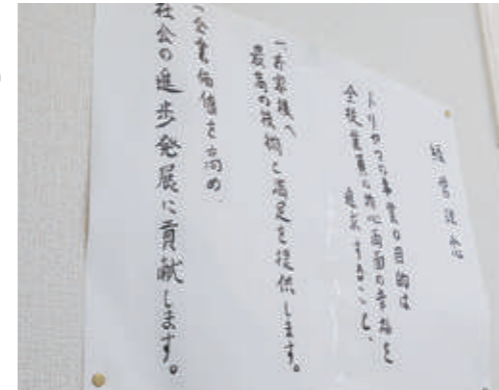 経営理念
トリカツの事業の目的は
全従業員の物心両面の幸福を
追求すること、
一お客様へ
最高の技術と満足を提供します。
一企業価値を高め
社会の進歩発展に貢献します。